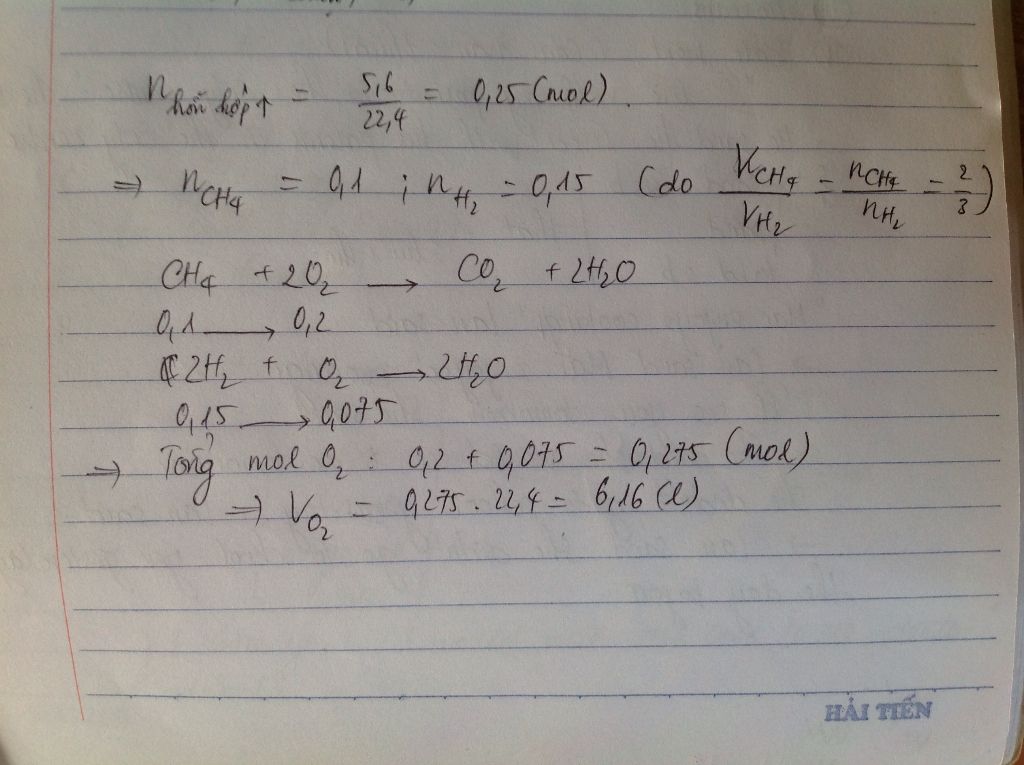 n hỗn hợp↑ = 5,6/22,4 = 0,25 (mol).
⇒ nCH4 = 0,1 ; nH2 = 0,15 (do VCH4/VH2 = nCH4/nH2 = 2/3)
CH4 + 2O2 → CO2 + 2H2O
0,1 → 0,2
2H2 + O2 → 2H2O
0,15 → 0,075
⇒ Tổng mol O2 : 0,2 + 0,075 = 0,275 (mol)
⇒ VO2 = 0,275 . 22,4 = 6,16 (l)
HẢI TIẾN